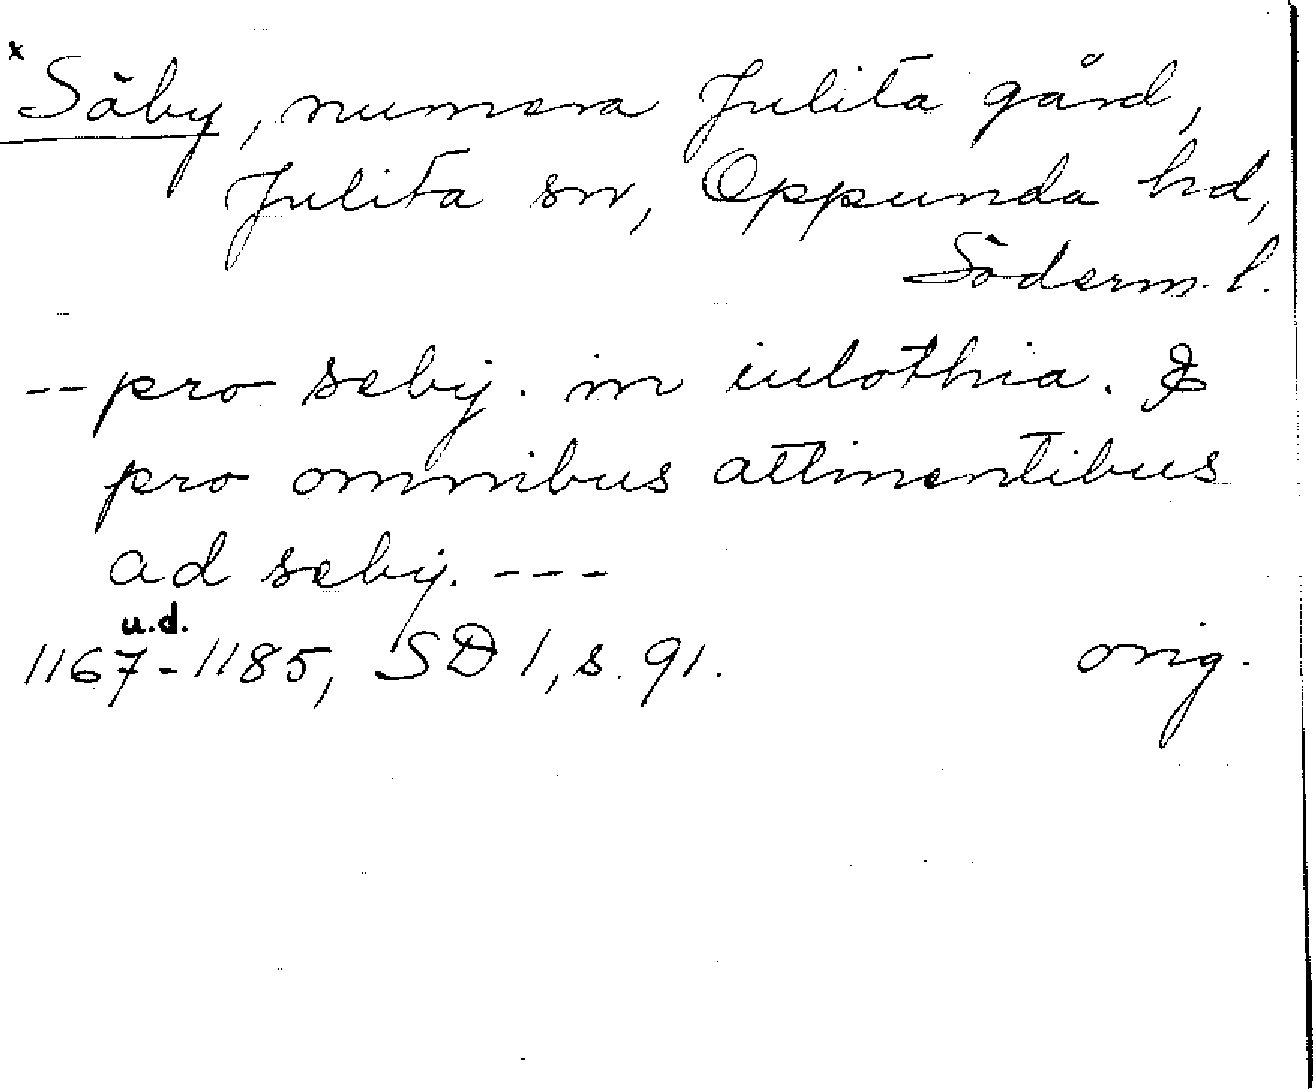 x Säby, numera Julita gård,
Julita sn, Oppunda hd,
Söderm. l.
-- pro seby. in iulothia. &
pro omnibus attinentibus
ad seby. ---
u.d.
1167-1185, SD 1, s. 91. orig.